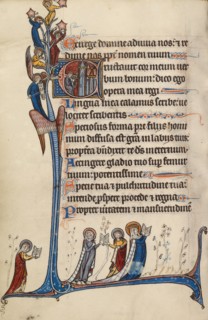 Exurge domine adiuua nos: & re
dime nos ppt nomen tuum.
Eructauit cor meum ver
bum bonum: dico ego
opera mea regi.
Lingua mea calamus scribe: ue
lociter scribentis.
Speciosus forma pre filijs homi
num diffusa est gra in labijs tuis:
propterea benedixit te deus in eternum.
Accingere gladio tuo sup femur
tuum: potentissime.
Specie tua & pulchritudine tua:
intende prospere procede & regna.
Propter ueritatem & mansuetudine